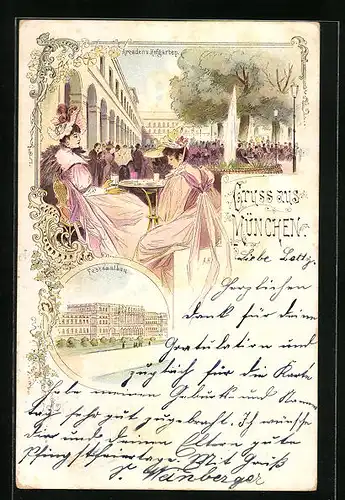 Arcaden i. Hofgarten.
Gruss aus
München.
Festsaalbau
Liebe Lotty.
Herzlichen
Dank für deine
Gratulation und
zugleich für die Karte
habe meinen Geburts und Namens
tag sehr gut zugebracht. Ich wünsche
Dir und deinen Eltern gute
Pfingstfeiertage. Mit Gruß